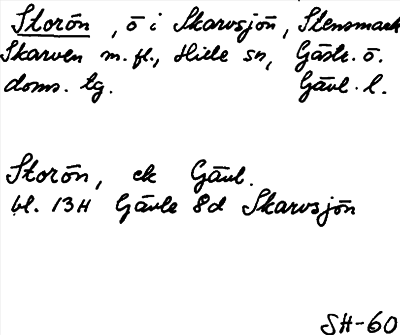 Storön, ö i Skarvsjön, Stensmark
Skarven m.fl., Hille sn, Gästr. ö.
doms. tg. Gävl. l.
Storön, ek Gävl.
bl. 13H Gävle 8d Skarvsjön
SH-60